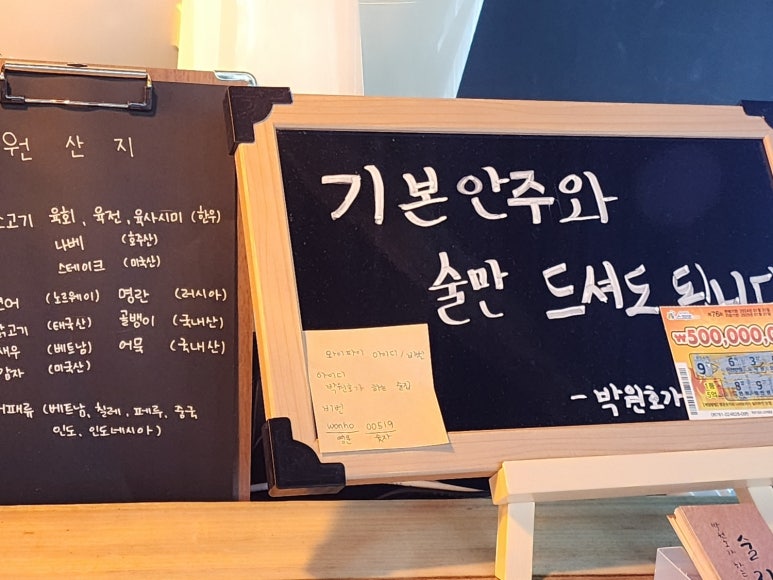 원산지
소고기 육회, 육전, 육사시미 (한우)
나베 (호주산)
스테이크 (미국산)
연어 (노르웨이) 명란 (러시아)
닭고기 (태국산) 골뱅이 (국내산)
새우 (베트남) 어묵 (국내산)
감자 (미국산)
어패류 (베트남, 칠레, 페루, 중국
인도, 인도네시아)
기본안주와
술만 드셔도 됩니다
-박원호가
와이파이 아이디/비번
아이디
박원호가 하는 술집
비번
wonho 00519
영문 숫자
₩500,000,0
9 6 3
8 9
술